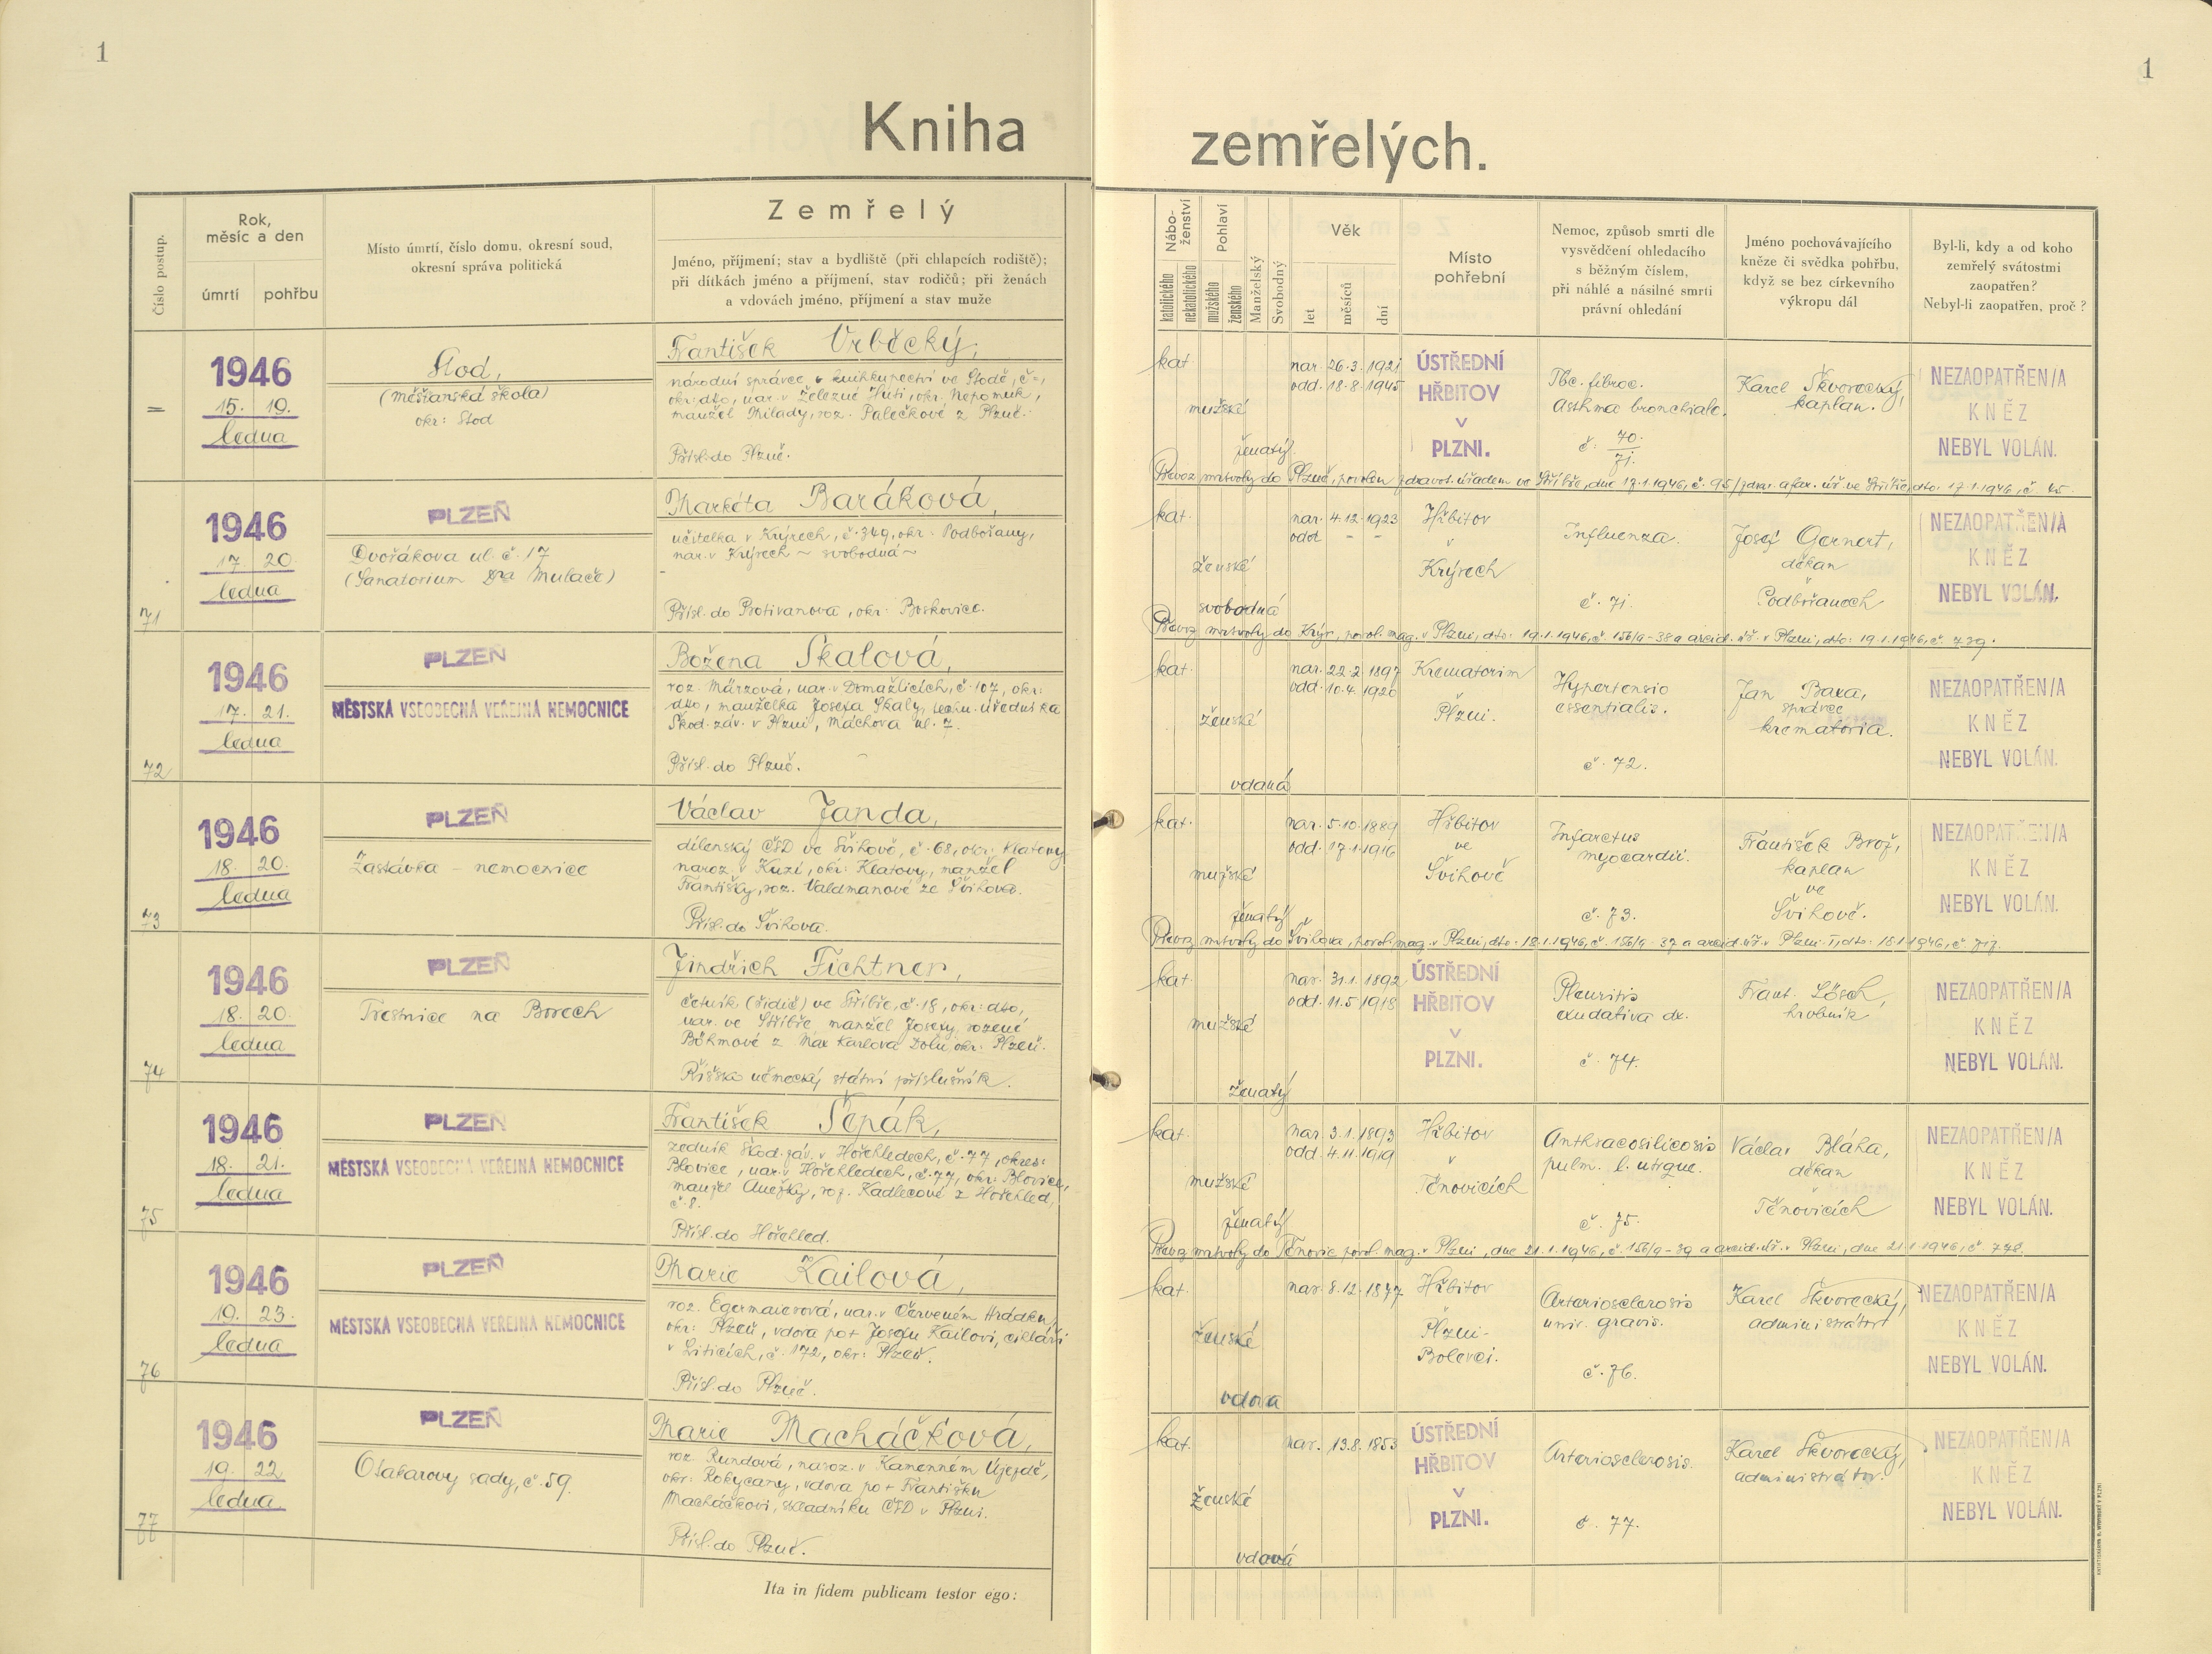 1
1
Kniha
zemřelých.
Číslo postup.
Rok,
měsíc a den
úmrtí
pohřbu
Místo úmrtí, číslo domu, okresní soud,
okresní správa politická
Zemřelý
Jméno, příjmení; stav a bydliště (při chlapcích rodiště);
při dítkách jméno a příjmení, stav rodičů; při ženách
a vdovách jméno, příjmení a stav muže
Nábo-
ženství
katolického
nekatolického
Pohlaví
mužského
ženského
Manželský
Svobodný
Věk
let
měsíců
dní
Místo
pohřební
Nemoc, způsob smrti dle
vysvědčení ohledacího
s běžným číslem,
při náhlé a násilné smrti
právní ohledání
Jméno pochovávajícího
kněze či svědka pohřbu,
když se bez církevního
výkropu dál
Byl-li, kdy a od koho
zemřelý svátostmi
zaopatřen?
Nebyl-li zaopatřen, proč?
=
1946
15. 19.
ledna
Stod,
(měšťanská škola)
okr: Stod
František Vrběcký,
národní správce knihkupectví ve Stodě, č=,
okr: dto, nar. v Železné Huti, okr. Nepomuk,
manžel Milady, roz. Palečkové z Plzně.
Přísl. do Plzně.
kat.
mužské
ženatý
nar. 26. 3. 1921
odd. 18. 8. 1945
ÚSTŘEDNÍ
HŘBITOV
V
PLZNI.
Tbc. fibroc.
Asthma bronchiale.
č. 70.
71.
Karel Škvorecký,
kaplan.
NEZAOPATŘEN/A
KNĚZ
NEBYL VOLÁN.
Převoz mrtvoly do Plzně, povolen zdravot. úřadem ve Stříbře, dne 17.1.1946, č. 95/zdrav. a far. úř. ve Stříbře, dto. 17.1.1946, č. 45.
71
1946
17. 20.
ledna
PLZEŇ
Dvořákova ul. č. 17
(Sanatorium Dra Mulače)
Markéta Baráková,
učitelka v Krýrech, č. 349, okr. Podbořany,
nar. v Krýrech ~ svobodná ~
Přísl. do Protivanova, okr: Boskovice.
kat.
ženské
svobodná
nar. 4. 12. 1923
odd. - -
Hřbitov
v
Krýrech
Influenza.
č. 71.
Josef Gernert,
děkan
v
Podbořanech
NEZAOPATŘEN/A
KNĚZ
NEBYL VOLÁN.
Převoz mrtvoly do Krýr, povol. mag. v Plzni, dto: 19.1.1946, č. 156/9-38 a arcid. úř. v Plzni, dto: 19.1.1946, č. 739.
72
1946
17. 21.
ledna
PLZEŇ
MĚSTSKÁ VŠEOBECNÁ VEŘEJNÁ NEMOCNICE
Božena Skalová,
roz. Märzová, nar. v Domažlicích, č. 107, okr:
dto, manželka Josefa Skaly, techn. úředníka
Škod. záv. v Plzni, Máchova ul. 7.
Přísl. do Plzně.
kat.
ženské
vdaná
nar. 22. 2. 1897
odd. 10. 4. 1920
Krematorim
v
Plzni.
Hypertensio
essentialis.
č. 72.
Jan Baxa,
správce
krematoria.
NEZAOPATŘEN/A
KNĚZ
NEBYL VOLÁN.
73
1946
18. 20.
ledna
PLZEŇ
Zastávka - nemocnice
Václav Janda,
dílenský ČSD ve Švihově, č. 68, okr: Klatovy,
naroz. v Kuzí, okr: Klatovy, manžel
Františky, roz. Valdmanové ze Švihova.
Přísl. do Švihova.
kat.
mužské
ženatý
nar. 5. 10. 1889
odd. 17. 1. 1916
Hřbitov
ve
Švihově
Infarctus
myocardii.
č. 73.
František Brož,
kaplan
ve
Švihově.
NEZAOPATŘEN/A
KNĚZ
NEBYL VOLÁN.
Převoz mrtvoly do Švihova, povol. mag. v Plzni, dto: 18.1.1946, č. 156/9-37 a arcid. úř. v Plzni I, dto: 18.1.1946, č. 717.
74
1946
18. 20.
ledna
PLZEŇ
Trestnice na Borech
Jindřich Fichtner,
četník (řidič) ve Stříbře, č. 18, okr: dto,
nar. ve Stříbře, manžel Josefy, rozené
Böhmové z Max Karlova Dolu, okr: Plzeň.
Říšsko německý státní příslušník.
kat.
mužské
ženatý
nar. 31. 1. 1892
odd. 11. 5. 1918
ÚSTŘEDNÍ
HŘBITOV
V
PLZNI.
Pleuritis
exudativa dx.
č. 74.
Frant. Lösch,
hrobník
NEZAOPATŘEN/A
KNĚZ
NEBYL VOLÁN.
75
1946
18. 21.
ledna
PLZEŇ
MĚSTSKÁ VŠEOBECNÁ VEŘEJNÁ NEMOCNICE
František Šepák,
zedník Škod. záv. v Hořehledech, č. 77, okres:
Blovice, nar. v Hořehledech, č. 77, okr: Blovice,
manžel Anežky, roz. Kadlecové z Hořehled,
č. 8.
Přísl. do Hořehled.
kat.
mužské
ženatý
nar. 3. 1. 1893
odd. 4. 11. 1919
Hřbitov
v
Těnovicích
Anthracosilicosis
pulm. l. utrque.
č. 75.
Václav Bláha,
děkan
v
Těnovicích
NEZAOPATŘEN/A
KNĚZ
NEBYL VOLÁN.
Převoz mrtvoly do Těnovic povol. mag. v Plzni, dne 21.1.1946, č. 156/9-39 a arcid. úř. v Plzni, dne 21.1.1946, č. 778.
76
1946
19. 23.
ledna
PLZEŇ
MĚSTSKÁ VŠEOBECNÁ VEŘEJNÁ NEMOCNICE
Marie Kailová,
roz. Egermaierová, nar. v Červeném Hrádku,
okr: Plzeň, vdova po + Josefu Kailovi, cihláři
v Liticích, č. 172, okr: Plzeň.
Přísl. do Plzně.
kat.
ženské
vdova
nar. 8. 12. 1877
Hřbitov
v
Plzni-
Bolevci.
Arteriosclerosis
univ. gravis.
č. 76.
Karel Škvorecký,
administrátor
NEZAOPATŘEN/A
KNĚZ
NEBYL VOLÁN.
77
1946
19. 22.
ledna
PLZEŇ
Otakarovy sady, č. 59.
Marie Macháčková,
roz. Rundová, naroz. v Kamenném Újezdě,
okr: Rokycany, vdova po + Františku
Macháčkovi, skladníku ČSD v Plzni.
Přísl. do Plzně.
kat.
ženské
vdová
nar. 13. 8. 1853
ÚSTŘEDNÍ
HŘBITOV
V
PLZNI.
Arteriosclerosis.
č. 77.
Karel Škvorecký,
administrátor.
NEZAOPATŘEN/A
KNĚZ
NEBYL VOLÁN.
Ita in fidem publicam testor ego: